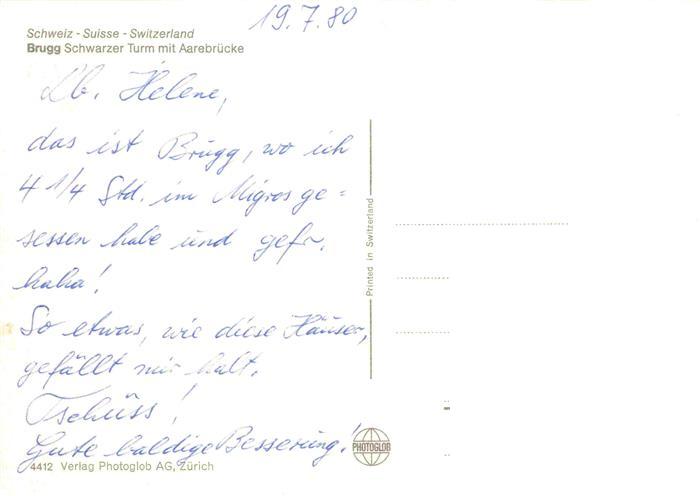 19.7.80
Schweiz - Suisse - Switzerland
Brugg Schwarzer Turm mit Aarebrücke
Lb. Helene,
das ist Brugg, wo ich
4 1/4 Std. im Migros ge=
sessen habe und gefr.
haha!
So etwas, wie diese Häuser,
gefällt mir halt.
Tschüss!
Gute baldige Besserung!
4412 Verlag Photoglob AG, Zürich
Printed in Switzerland
PHOTOGLOB